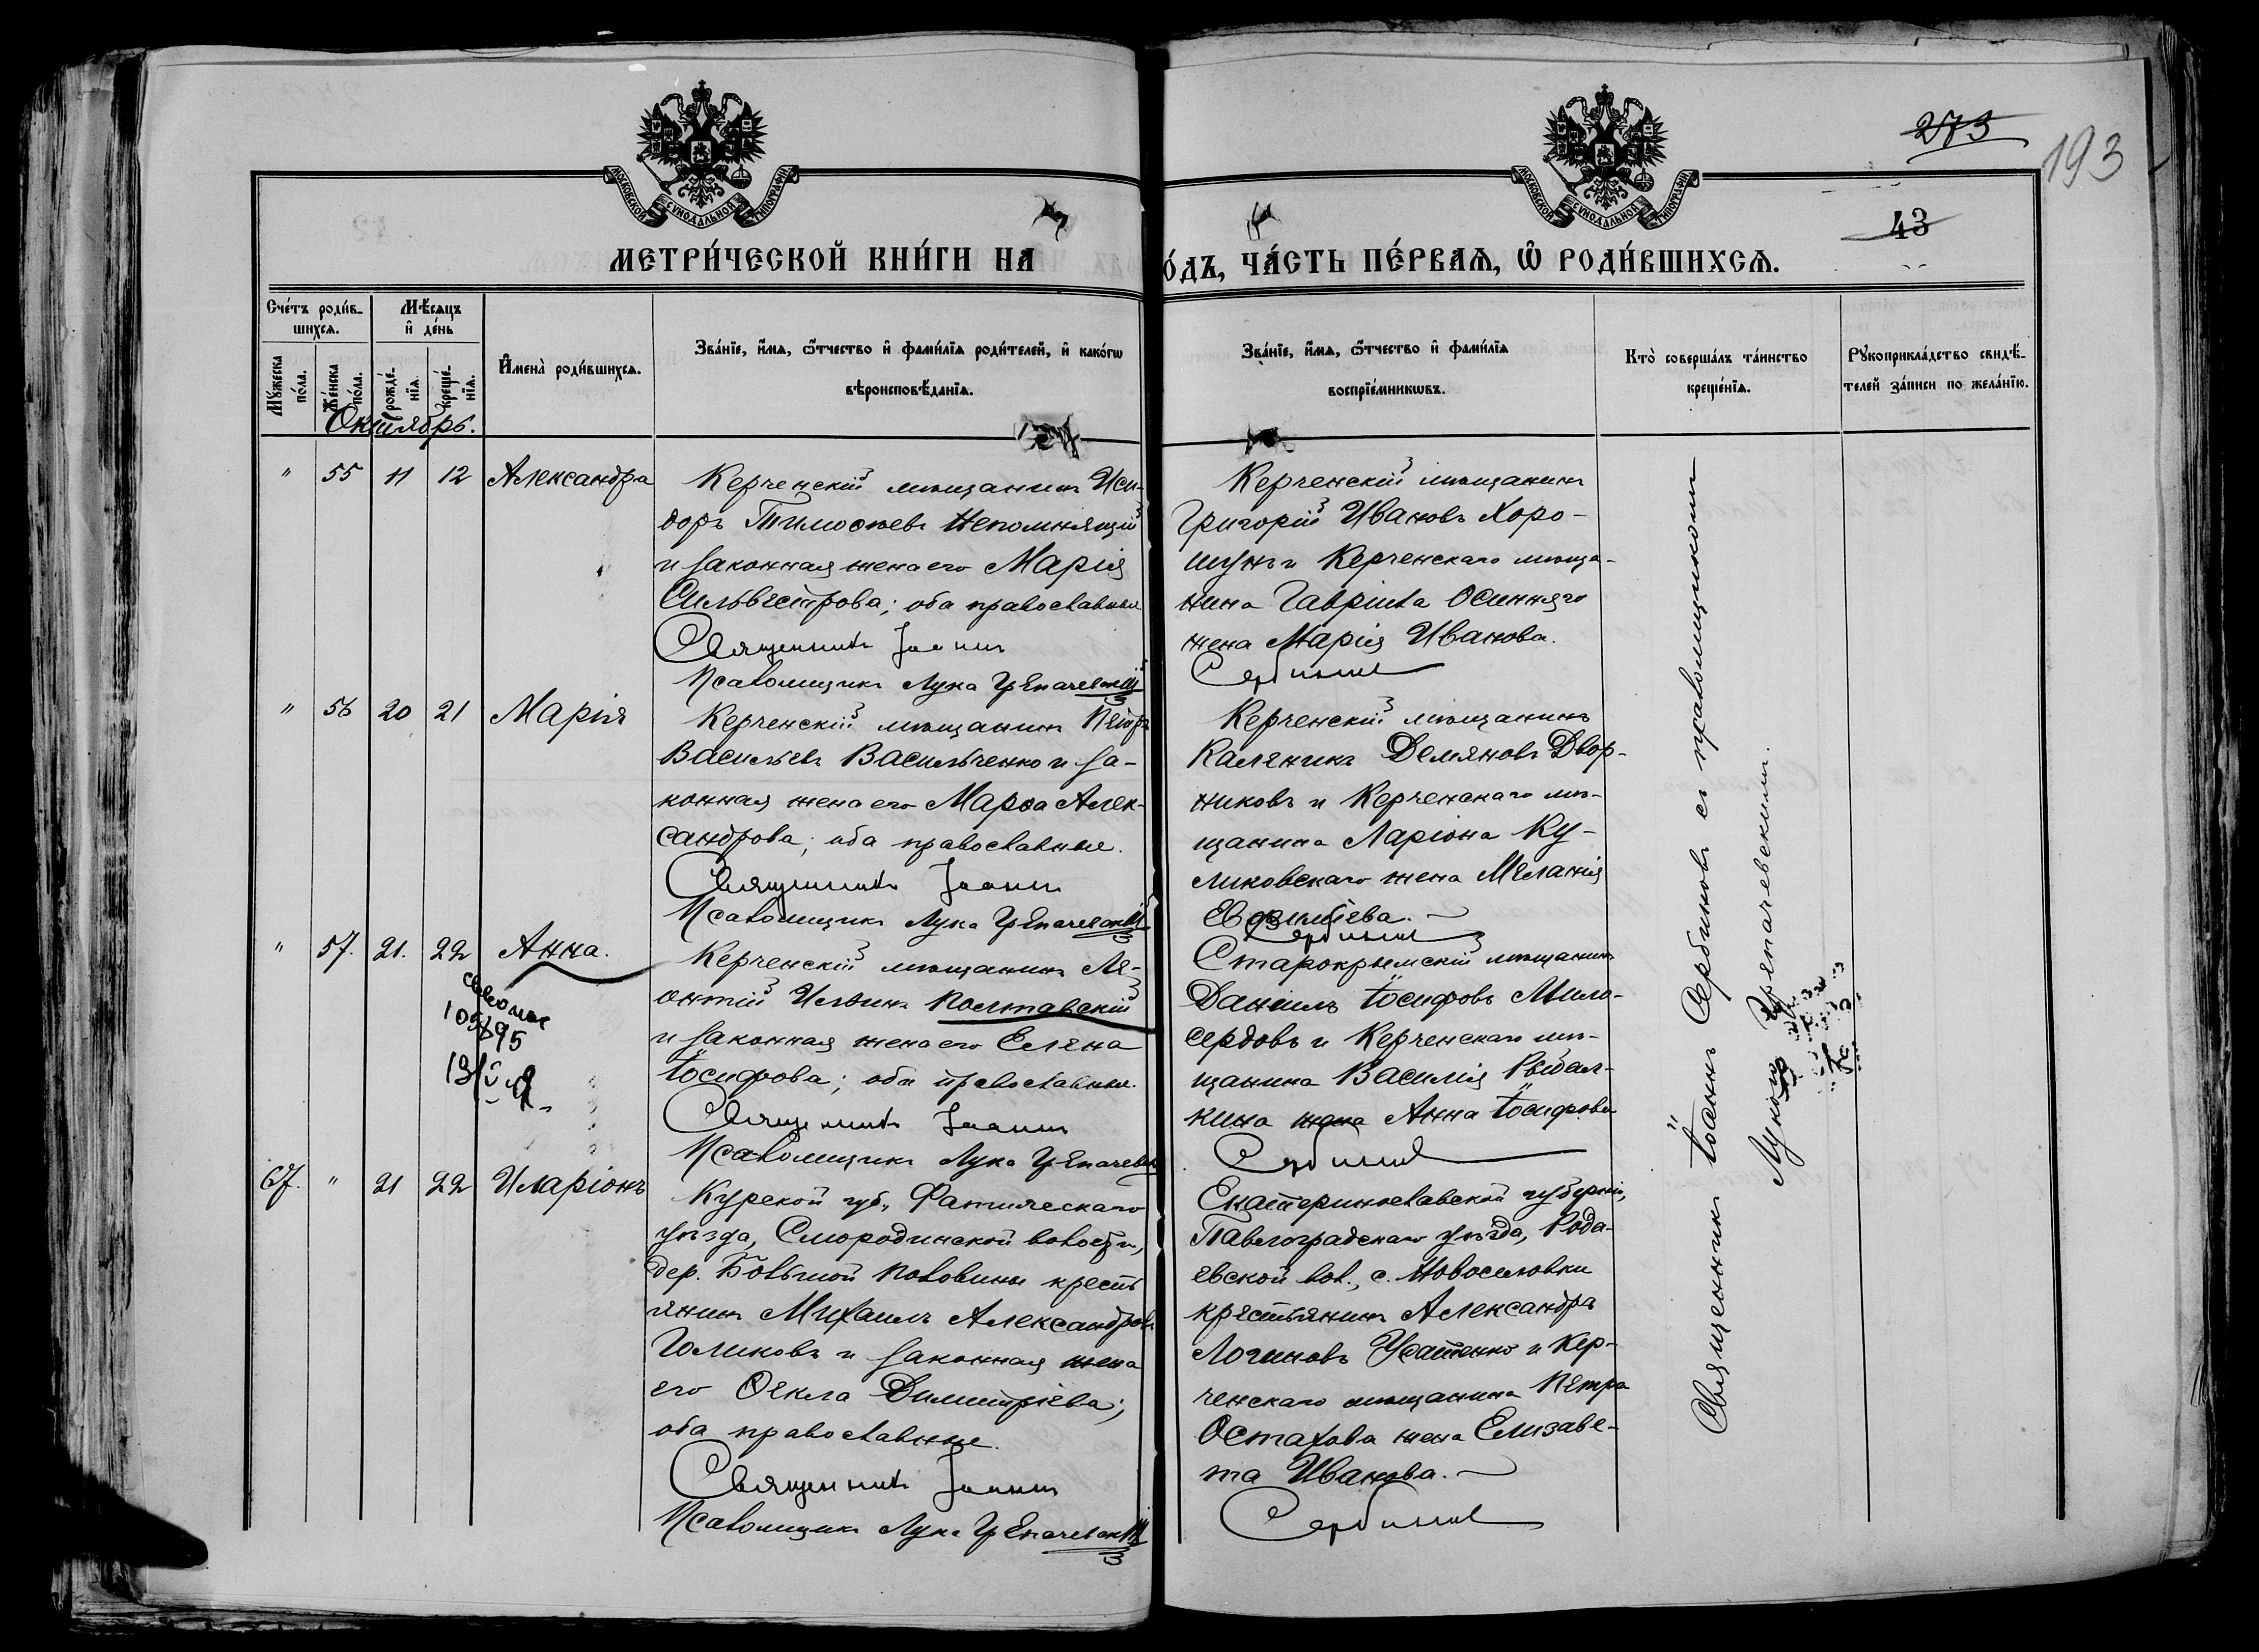 273
193
43
МОСКОВСКОЙ СѴНОДАЛЬНОЙ ТИПОГРАФІИ
МОСКОВСКОЙ СѴНОДАЛЬНОЙ ТИПОГРАФІИ
МЕТРИ́ЧЕСКОЙ КНИ́ГИ НА
О́ДЪ, ЧА́СТЬ ПЕ́РВАѦ, Ѡ҆ РОДИ́ВШИХСѦ.
Сче́тъ роди́в-
шихсѧ.
Мꙋ́жеска
по́ла.
Же́нска
по́ла.
Мѣ́сѧцъ
и҆ де́нь
рожде́-
нїѧ.
креще́-
нїѧ.
И҆мена̀ роди́вшихсѧ.
Зва́нїе, и҆́мѧ, ѻ҆́тчество и҆ фами́лїѧ роди́телей, и҆ како́гѡ
вѣроисповѣ́данїѧ.
Зва́нїе, и҆́мѧ, ѻ҆́тчество и҆ фами́лїѧ
воспрїе́мникѡвъ.
Кто̀ соверша́лъ та́инство
креще́нїѧ.
Рꙋкоприкла́дство свидѣ́-
телей за́писи по жела́нїю.
Октябрь.
" 55 11 12 Александра
Керченскій мѣщанинъ Иси-
доръ Тимоѳеевъ Непомнящій
и законная жена его Марія
Сильвестрова; оба православные
Священникъ Іоаннъ
Псаломщикъ Лука
Керченскій мѣщанинъ
Григорій Ивановъ Хоро-
шунъ и Керченскаго мѣща-
нина Гавріила Осинняго
жена Марія Иванова.
Сербиновъ
" 56 20 21 Марія
Керченскій мѣщанинъ Петръ
Васильевъ Васильченко и за-
конная жена его Марѳа Алек-
сандрова; оба православные.
Священникъ Іоаннъ
Псаломщикъ Лука
Керченскій мѣщанинъ
Каленикъ Демяновъ Двор-
никовъ и Керченскаго мѣ-
щанина Ларіона Ку-
ликовскаго жена Меланія
Евфиміева.
Сербиновъ
" 57. 21. 22 Анна.
105
895
Керченскій мѣщанинъ Ле-
онтій Ильинъ Полтавскій
и законная жена его Елена
Іосифова; оба православные.
Священникъ Іоаннъ
Псаломщикъ Лука
Старокрымскій мѣщанинъ
Даніилъ Іосифовъ Мило-
сердовъ и Керченскаго мѣ-
щанина Василія Рыбал-
кина жена Анна Іосифова
Сербиновъ
67. " 21 22 Иларіонъ
Курской губ., Фатижескаго
уѣзда, Смородинской волости,
дер. Большой Половины кресть
янинъ Михаилъ Александровъ
Голиковъ и законная жена
его Ѳекла Димитріева;
оба православные.
Священникъ Іоаннъ
Псаломщикъ Лука
Екатеринославской губерніи,
Павлоградскаго уѣзда, Рода-
евской вол., с. Новоселовки
крестьянинъ Александръ
Логиновъ Усатенко и Кер-
ченскаго мѣщанина Петра
Остахова жена Елизаве-
та Иванова.
Сербиновъ
Священникъ Іоаннъ Сербиновъ съ псаломщикомъ
Лукою